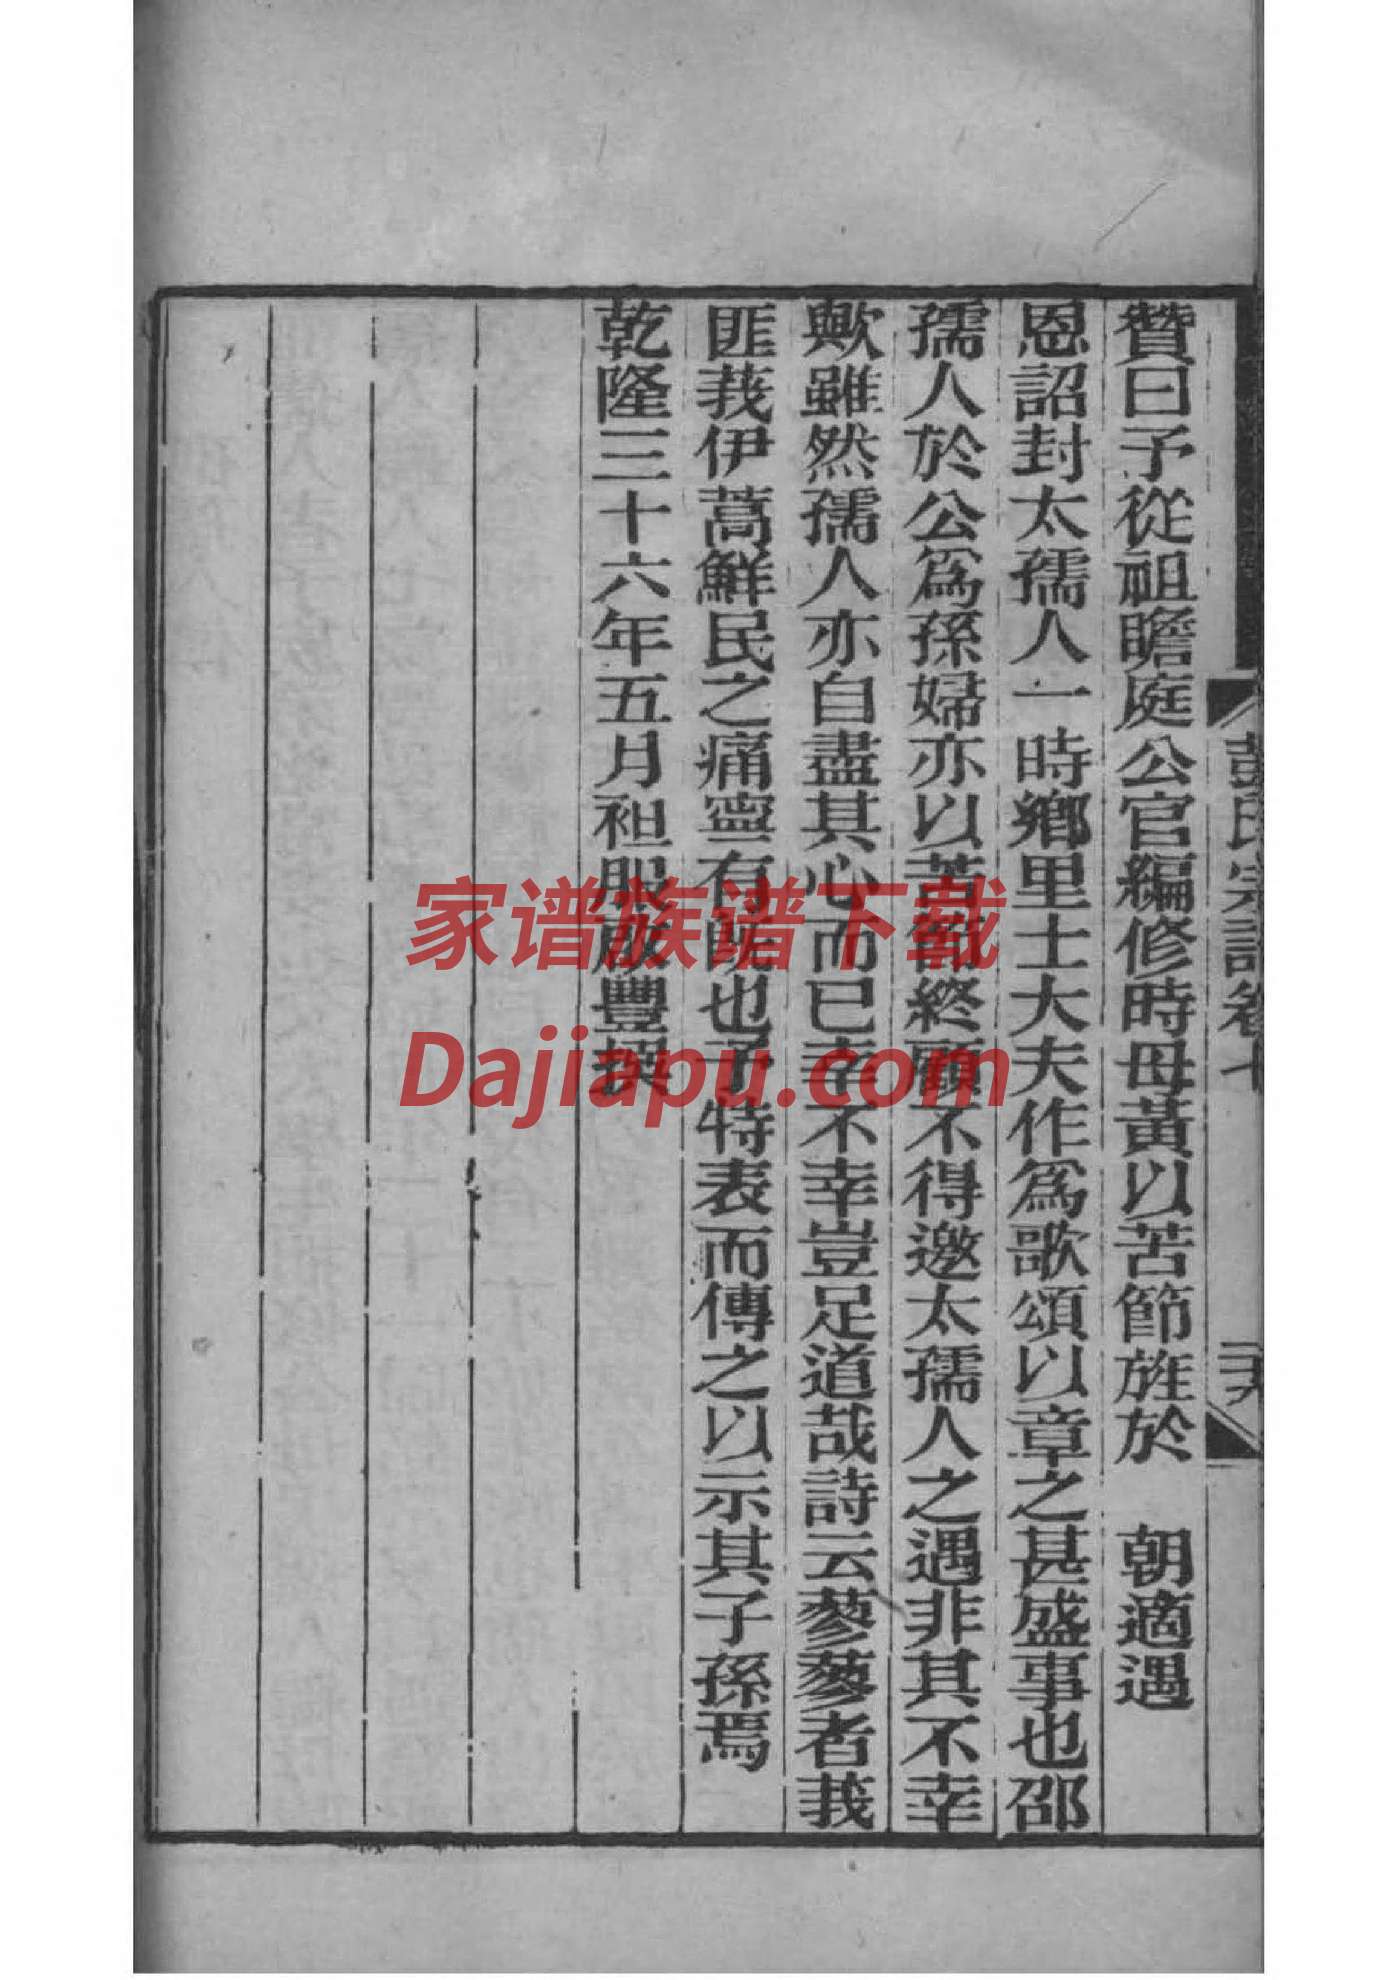 贊曰予從祖瞻庭公官編修時母黃以苦節旌於　朝適遇
恩詔封太孺人一時鄉里士大夫作爲歌頌以章之甚盛事也邵
孺人於公爲孫婦亦以苦節終顧不得邀太孺人之遇非其不幸
歟雖然孺人亦自盡其心而已幸不幸豈足道哉詩云蓼蓼者莪
匪莪伊蒿鮮民之痛寧有旣也予特表而傳之以示其子孫焉
乾隆三十六年五月袒服啟豐撰
彭氏宗譜卷七
二十六
家谱族谱下载
Dajiapu.com